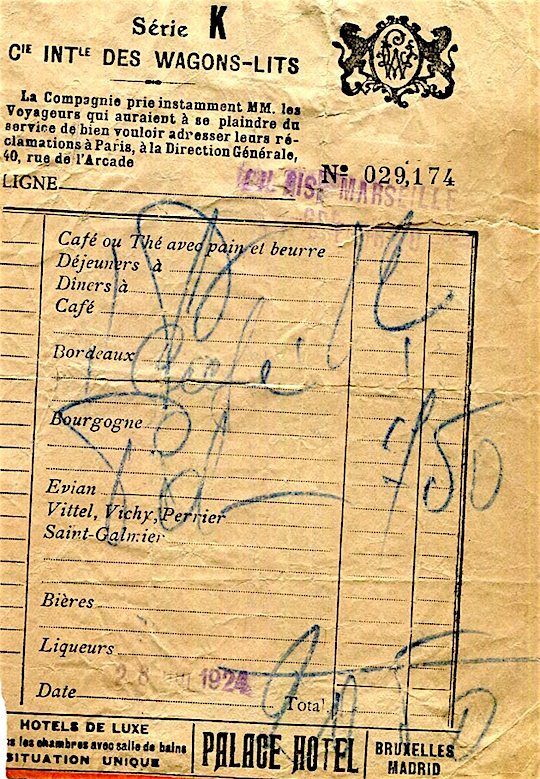 Série K
CIE INTLE DES WAGONS-LITS
La Compagnie prie instamment MM. les
Voyageurs qui auraient à se plaindre du
service de bien vouloir adresser leurs ré-
clamations à Paris, à la Direction Générale,
40, rue de l'Arcade
Nº 029,174
LIGNE
MARSEILLE
Café ou Thé avec pain et beurre
Déjeuners à
Dîners à
Café
Bordeaux
Bourgogne
750
Evian
Vittel, Vichy, Perrier
Saint-Galmier
Bières
Liqueurs
Date 1924
Total
HOTELS DE LUXE
les chambres avec salle de bains
SITUATION UNIQUE
PALACE HOTEL
BRUXELLES
MADRID